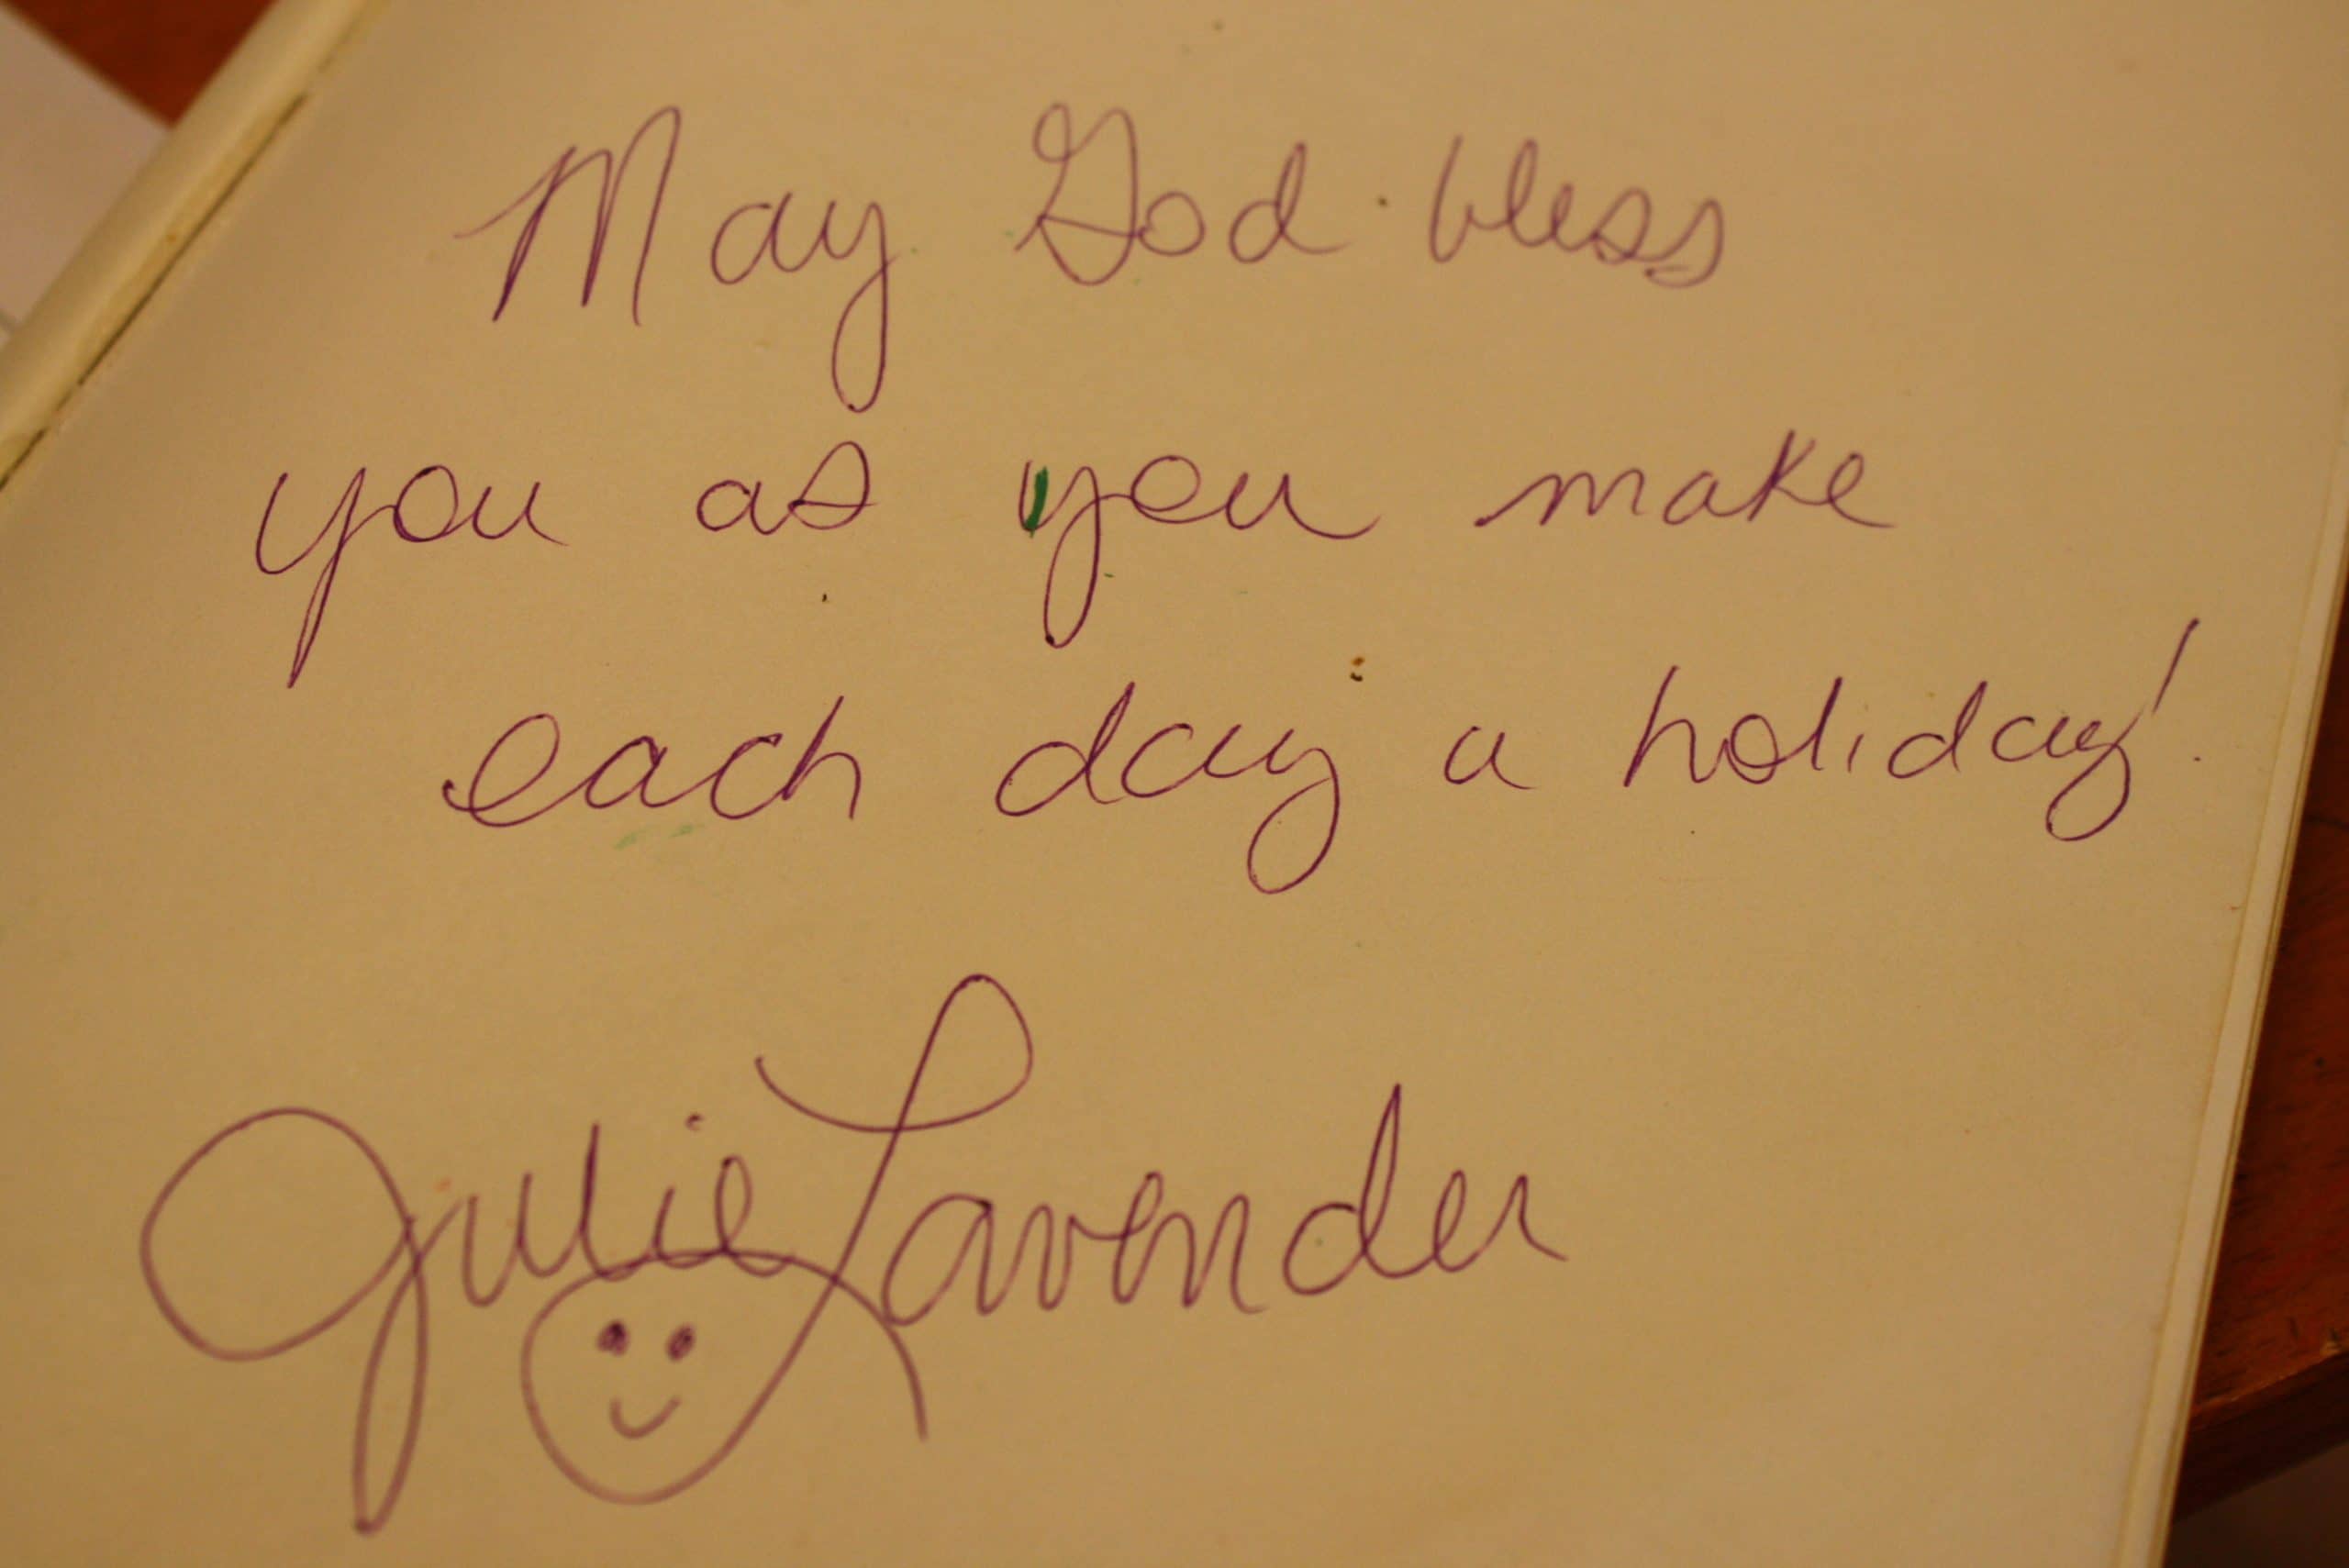 May God bless
you as you make
each day a holiday!
Julie Lavender